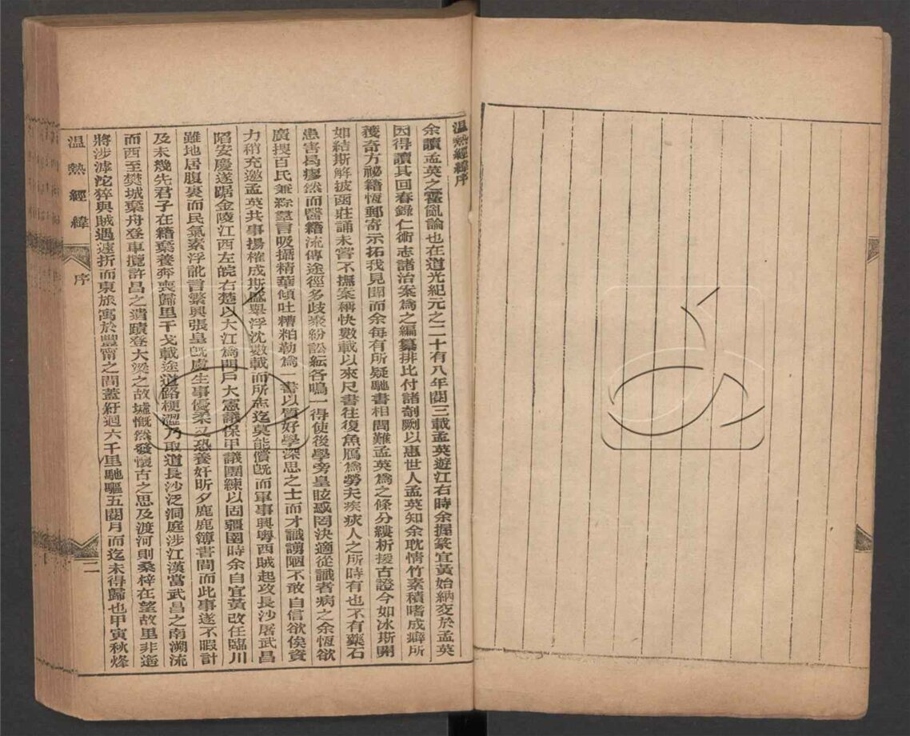 溫熱經緯序
余讀孟英之霍亂論也在道光紀元之二十有八年閱三載孟英遊江右時余握篆宜黃始納交於孟英
因得讀其回春錄仁術志諸治案為之編纂排比付諸剞劂以惠世人孟英知余耽情竹素積嗜成癖所
獲奇方祕籍恆郵寄示拓我見聞而余每有所疑馳書相問難孟英為之條分縷析援古證今如冰斯開
如結斯解披函莊誦未嘗不撫案稱快數載以來尺書往復魚鴈為勞夫疾疢人之所時有也不有藥石
患害曷瘳然而醫籍流傳途徑多歧聚紛訟紜各鳴一得使後學旁皇眩惑罔決適從識者病之余恆欲
廣搜百氏兼綜羣言吸攝精華傾吐糟粕勒為一書以質好學深思之士而才識謭陋不敢自信欲俟資
力稍充邀孟英共事揚榷成斯盛舉浮沈數載而所志迄莫能償既而軍事興粵西賊起攻長沙屠武昌
陷安慶遂踞金陵江西左皖右楚以大江為門戶大憲議保甲議團練以固疆圉時余自宜黃改任臨川
雖地居腹裏而民氣素浮訛言繁興張皇既虞生事優柔又恐養奸昕夕鹿鹿簿書間而此事遂不暇計
及未幾先君子在籍棄養奔喪歸里干戈載途道路梗澀乃取道長沙泛洞庭涉江漢當武昌之南溯流
而西至樊城棄舟登車攬許昌之遺蹟登大梁之故墟慨然發懷古之思及渡河則桑梓在望故里非遙
將涉滹沱猝與賊遇速折而東旅寓於豐甯之間蓋紆迴六千里馳驅五閱月而迄未得歸也甲寅秋烽
溫熱經緯
序
一